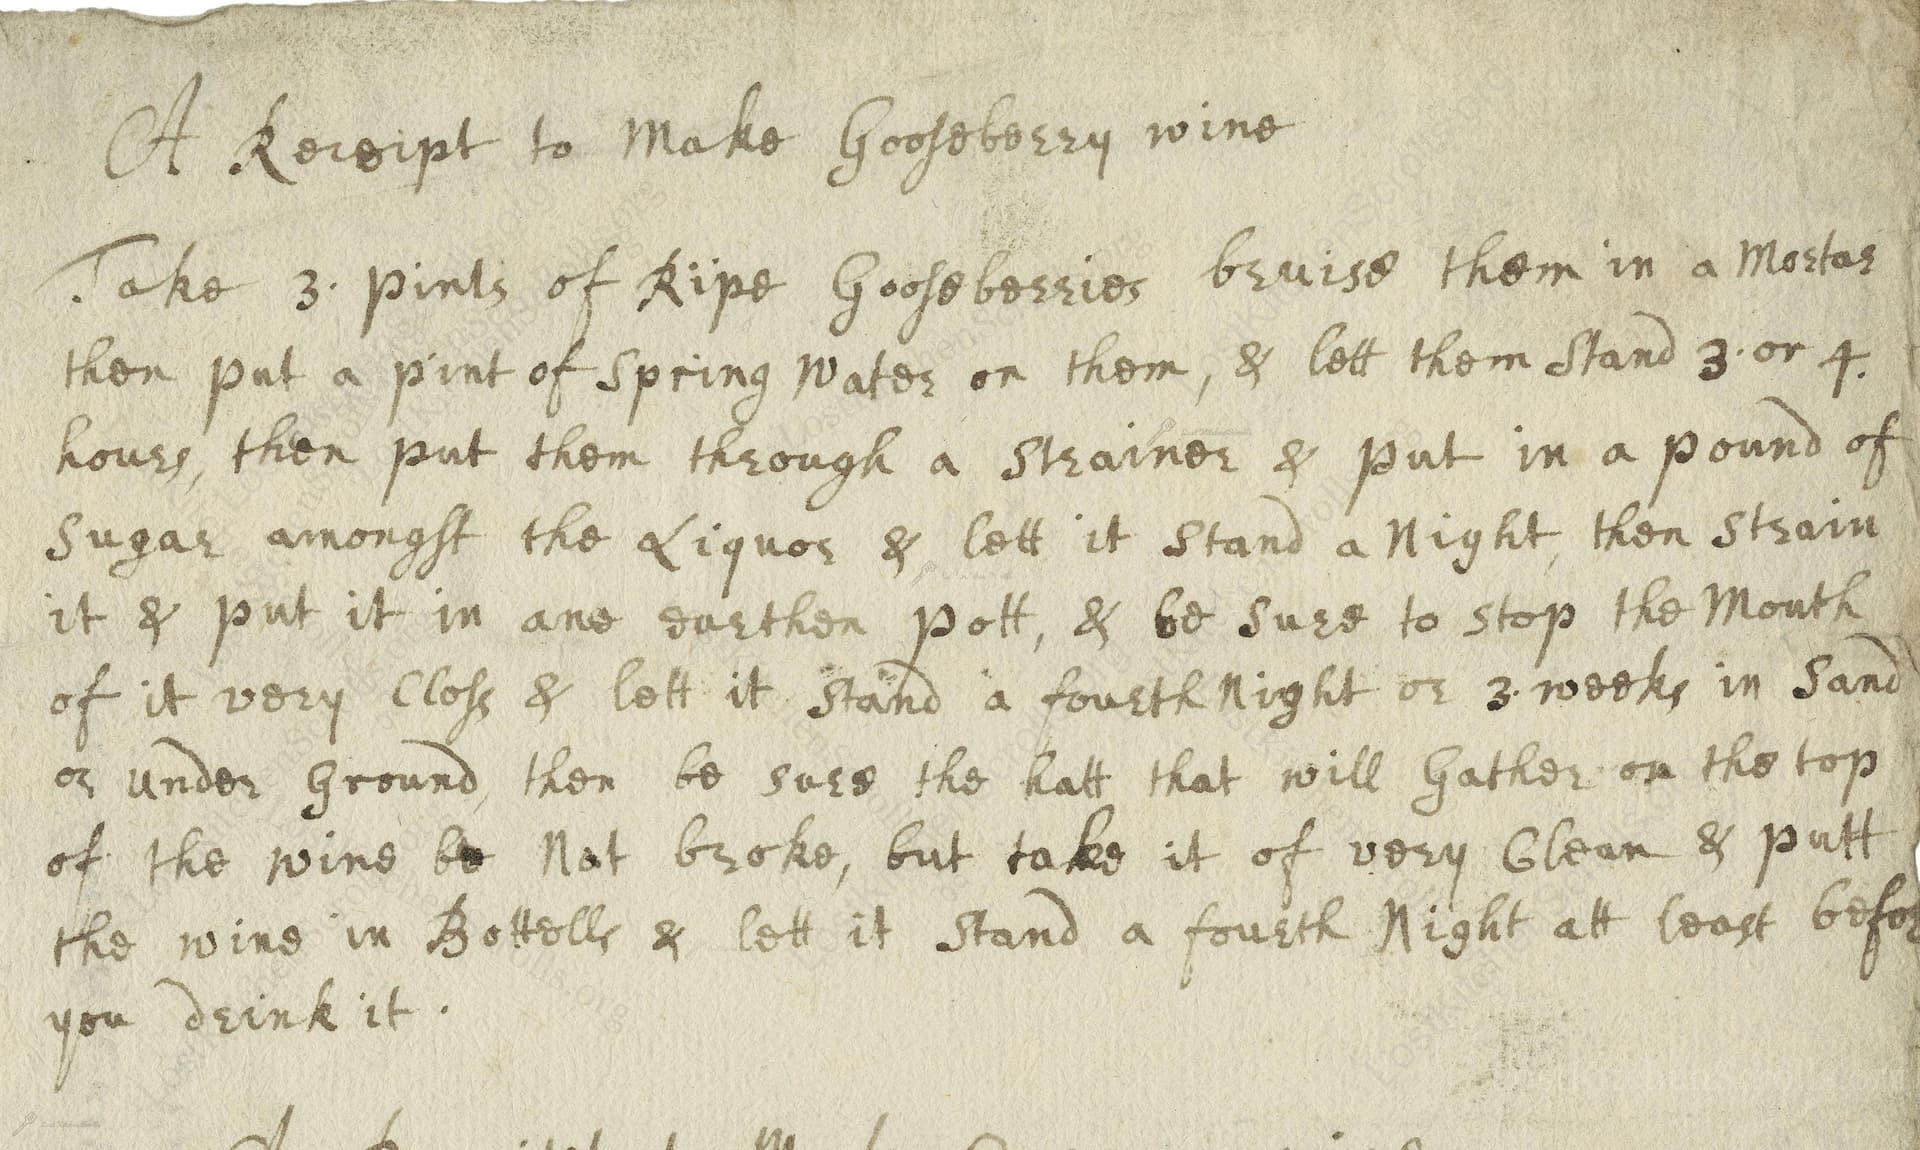 A Receipt to Make Gooseberry wine
Take 3. pints of Ripe Gooseberries bruise them in a Mortar
then put a pint of Spring Water on them, & lett them Stand 3. or 4.
hours, then put them through a Strainer & put in a pound of
Sugar amongst the Liquor & lett it Stand a Night, then Strain
it & put it in ane earthen pott, & be Sure to stop the Mouth
of it very Closs & lett it Stand a fourth Night or 3. weeks in Sand
or under Ground, then be sure the hatt that will Gather on the top
of the wine be Not broke, but take it of very Clean & putt
the wine in Bottells & lett it Stand a fourth Night att least befor
you drink it.